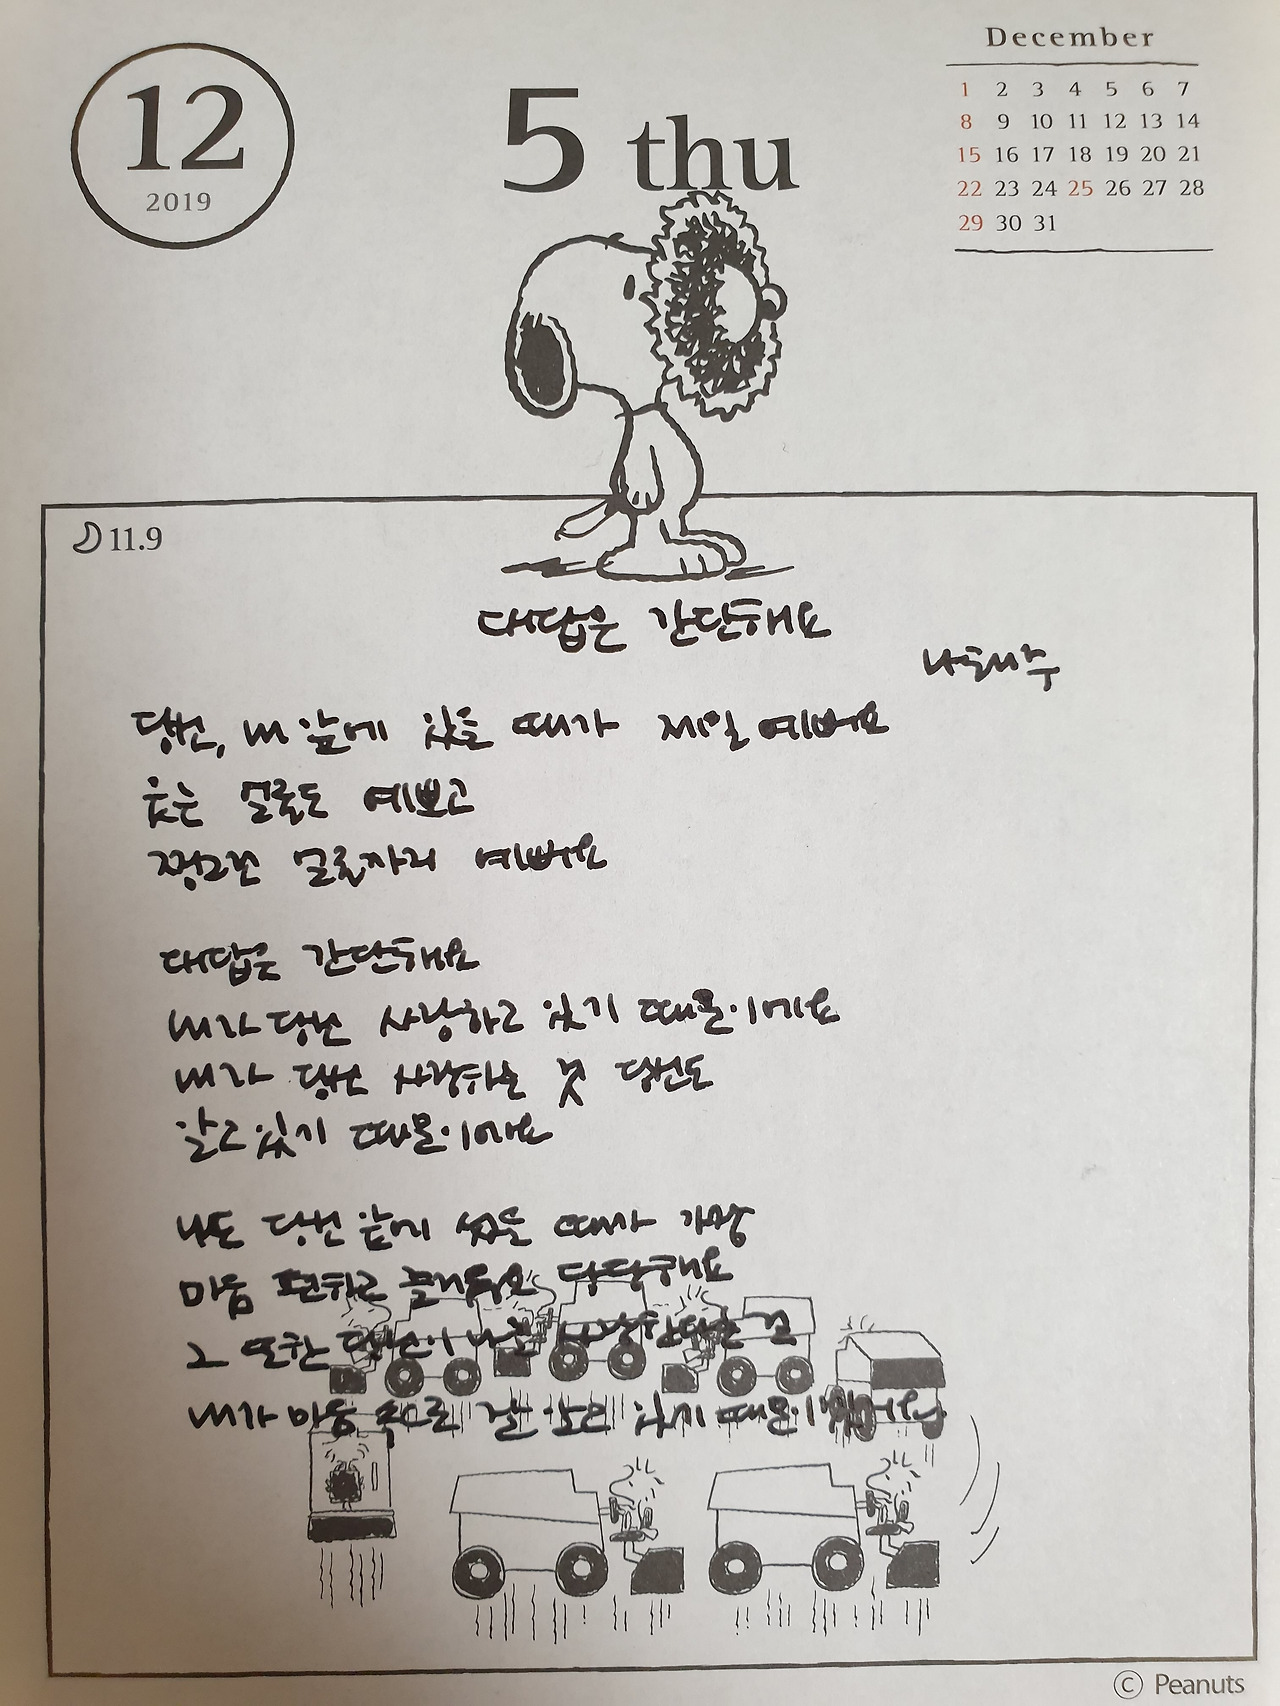 12
2019
5 thu
December
1 2 3 4 5 6 7
8 9 10 11 12 13 14
15 16 17 18 19 20 21
22 23 24 25 26 27 28
29 30 31
11.9
대답은 간단해요
나태주
당신, 내 앞에 있을 때가 제일 예뻐요
웃는 얼굴도 예쁘고
찡그린 얼굴까지 예뻐요
대답은 간단해요
내가 당신 사랑하고 있기 때문이에요
내가 당신 사랑하는 것 당신도
알고 있기 때문이에요
나도 당신 앞에 섰을 때가 가장
마음 편하고 즐거워요 당당해요
그 또한 당신이 나를 사랑한다는 걸
내가 마음 속으로 잘 알고 있기 때문이에요
© Peanuts